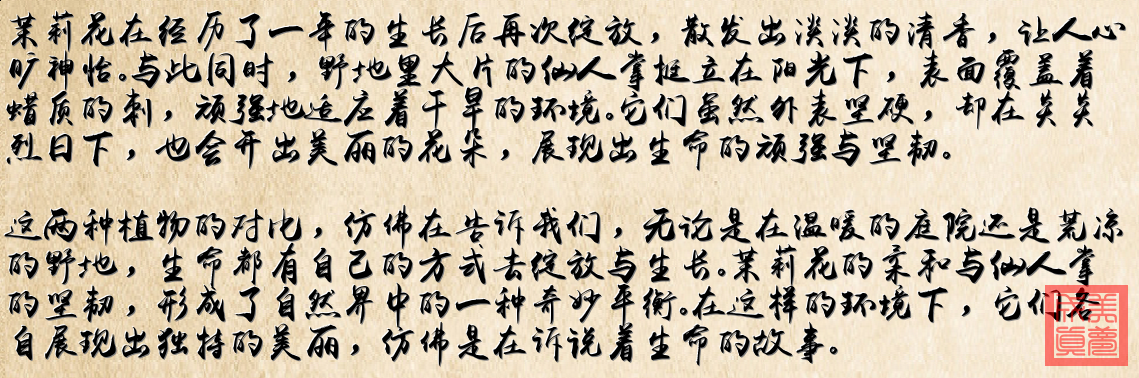 茉莉花在经历了一年的生长后再次绽放，散发出淡淡的清香，让人心
旷神怡。与此同时，野地里大片的仙人掌挺立在阳光下，表面覆盖着
蜡质的刺，顽强地适应着干旱的环境。它们虽然外表坚硬，却在炎炎
烈日下，也会开出美丽的花朵，展现出生命的顽强与坚韧。
这两种植物的对比，仿佛在告诉我们，无论是在温暖的庭院还是荒凉
的野地，生命都有自己的方式去绽放与生长。茉莉花的柔和与仙人掌
的坚韧，形成了自然界中的一种奇妙平衡。在这样的环境下，它们各
自展现出独特的美丽，仿佛是在诉说着生命的故事。